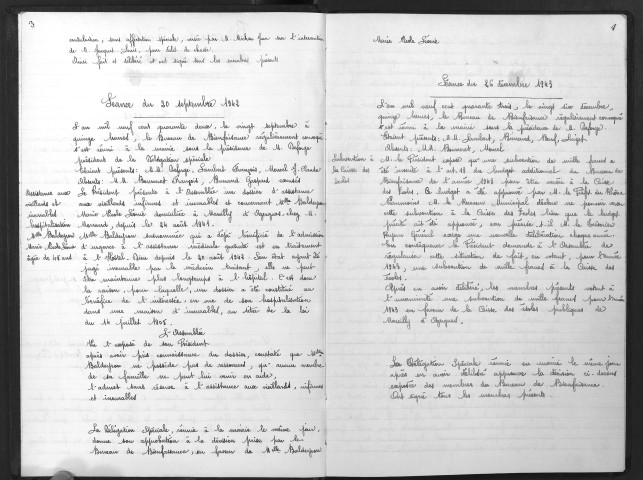 3
consultation, sans affectation spéciale, créée par M.
de M. Jacques Louis, pour
Ainsi fait et délibéré et ont signé tous les membres présents
Séance du 20 septembre 1942
L'an mil neuf cent quarante deux, le vingt septembre à
quinze heures, le Bureau de Bienfaisance régulièrement convoqué
s'est réuni à la mairie sous la présidence de M. Deforge
président de la Délégation spéciale
Etaient présents: MM. Deforge, Jambert François, Morel J. Claude
Absents: MM. Bonnemet François, Gaspard
Assistance aux
vieillards et
incurables
hospitalisation
Melle Baldeyron
Marie
âgée de ans
Le Président présente à l'Assemblée un dossier d'assistance
aux vieillards infirmes et incurables et concernant Melle Baldeyron
Marie domiciliée à Neuilly d'Azergues chez M.
depuis le 24 août 1941.
Melle Baldeyron susnommée qui a déjà bénéficié de l'admission
d'urgence à l'assistance médicale gratuite est en traitement
à l'Hôtel Dieu depuis le 20 août 1942. Son état ayant été
jugé incurable par le médecin traitant, elle ne peut
être maintenue plus longtemps à l'hôpital. C'est donc
la raison, pour laquelle, un dossier a été constitué au
bénéfice de l'intéressée, en vue de son hospitalisation
dans une maison d'incurables, au titre de la loi
du 14 juillet 1905.
L'Assemblée
Vu l'exposé de son Président
après avoir pris connaissance du dossier, constaté que Melle
Baldeyron ne possède pas de ressources, qu'aucun membre
de sa famille ne peut lui venir en aide,
l'admet sans réserve à l'assistance aux vieillards, infirmes
et incurables
La Délégation Spéciale, réunie à la mairie le même jour,
donne son approbation à la décision prise par le
Bureau de Bienfaisance, en faveur de Melle Baldeyron
4
Marie
Séance du 26 décembre 1943
L'an mil neuf cent quarante trois, le vingt six décembre,
quinze heures, le Bureau de Bienfaisance régulièrement convoqué
s'est réuni à la mairie sous la présidence de M. Deforge
Etaient présents: MM. Jambert, Bonnemet,
Absents: MM. Morel
Subvention à
la Caisse des
Ecoles
M. le Président expose qu'une subvention de mille francs a
été inscrite à l'art. 18 du budget additionnel du Bureau de
Bienfaisance de l'année 1943 pour être versée à la Caisse
des Ecoles. Ce budget a été approuvé par M. le Préfet du Rhône.
M. le Receveur Municipal déclare ne pouvoir verser
cette subvention à la Caisse des Ecoles bien que le budget
précité ait été approuvé, car prétend-il M. le Trésorier
Payeur Général exige une nouvelle délibération chaque année.
En conséquence le Président demande à l'Assemblée de
régulariser cette situation de fait, en votant, pour l'année
1943, une subvention de mille francs à la Caisse des
Ecoles.
Après en avoir délibéré, les membres présents votent à
l'unanimité une subvention de mille francs pour l'année
1943 en faveur de la Caisse des écoles publiques de
Neuilly d'Azergues.
La Délégation Spéciale réunie en mairie le même jour
après en avoir délibéré approuve la décision ci-dessus
exposée des membres du Bureau de Bienfaisance.
Ont signé tous les membres présents.